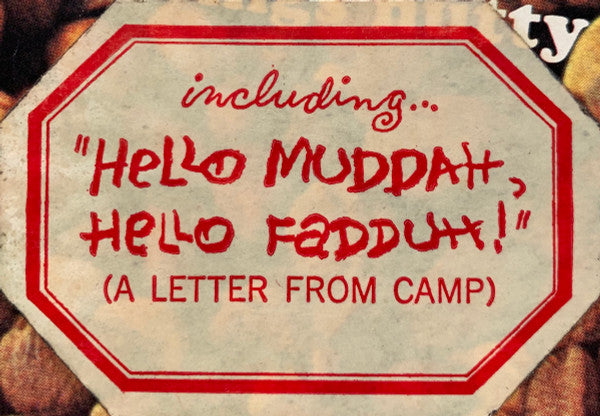 ty
including...
"HeLLO MUDDAH,
HeLLO FaDDUH!"
(A LETTER FROM CAMP)